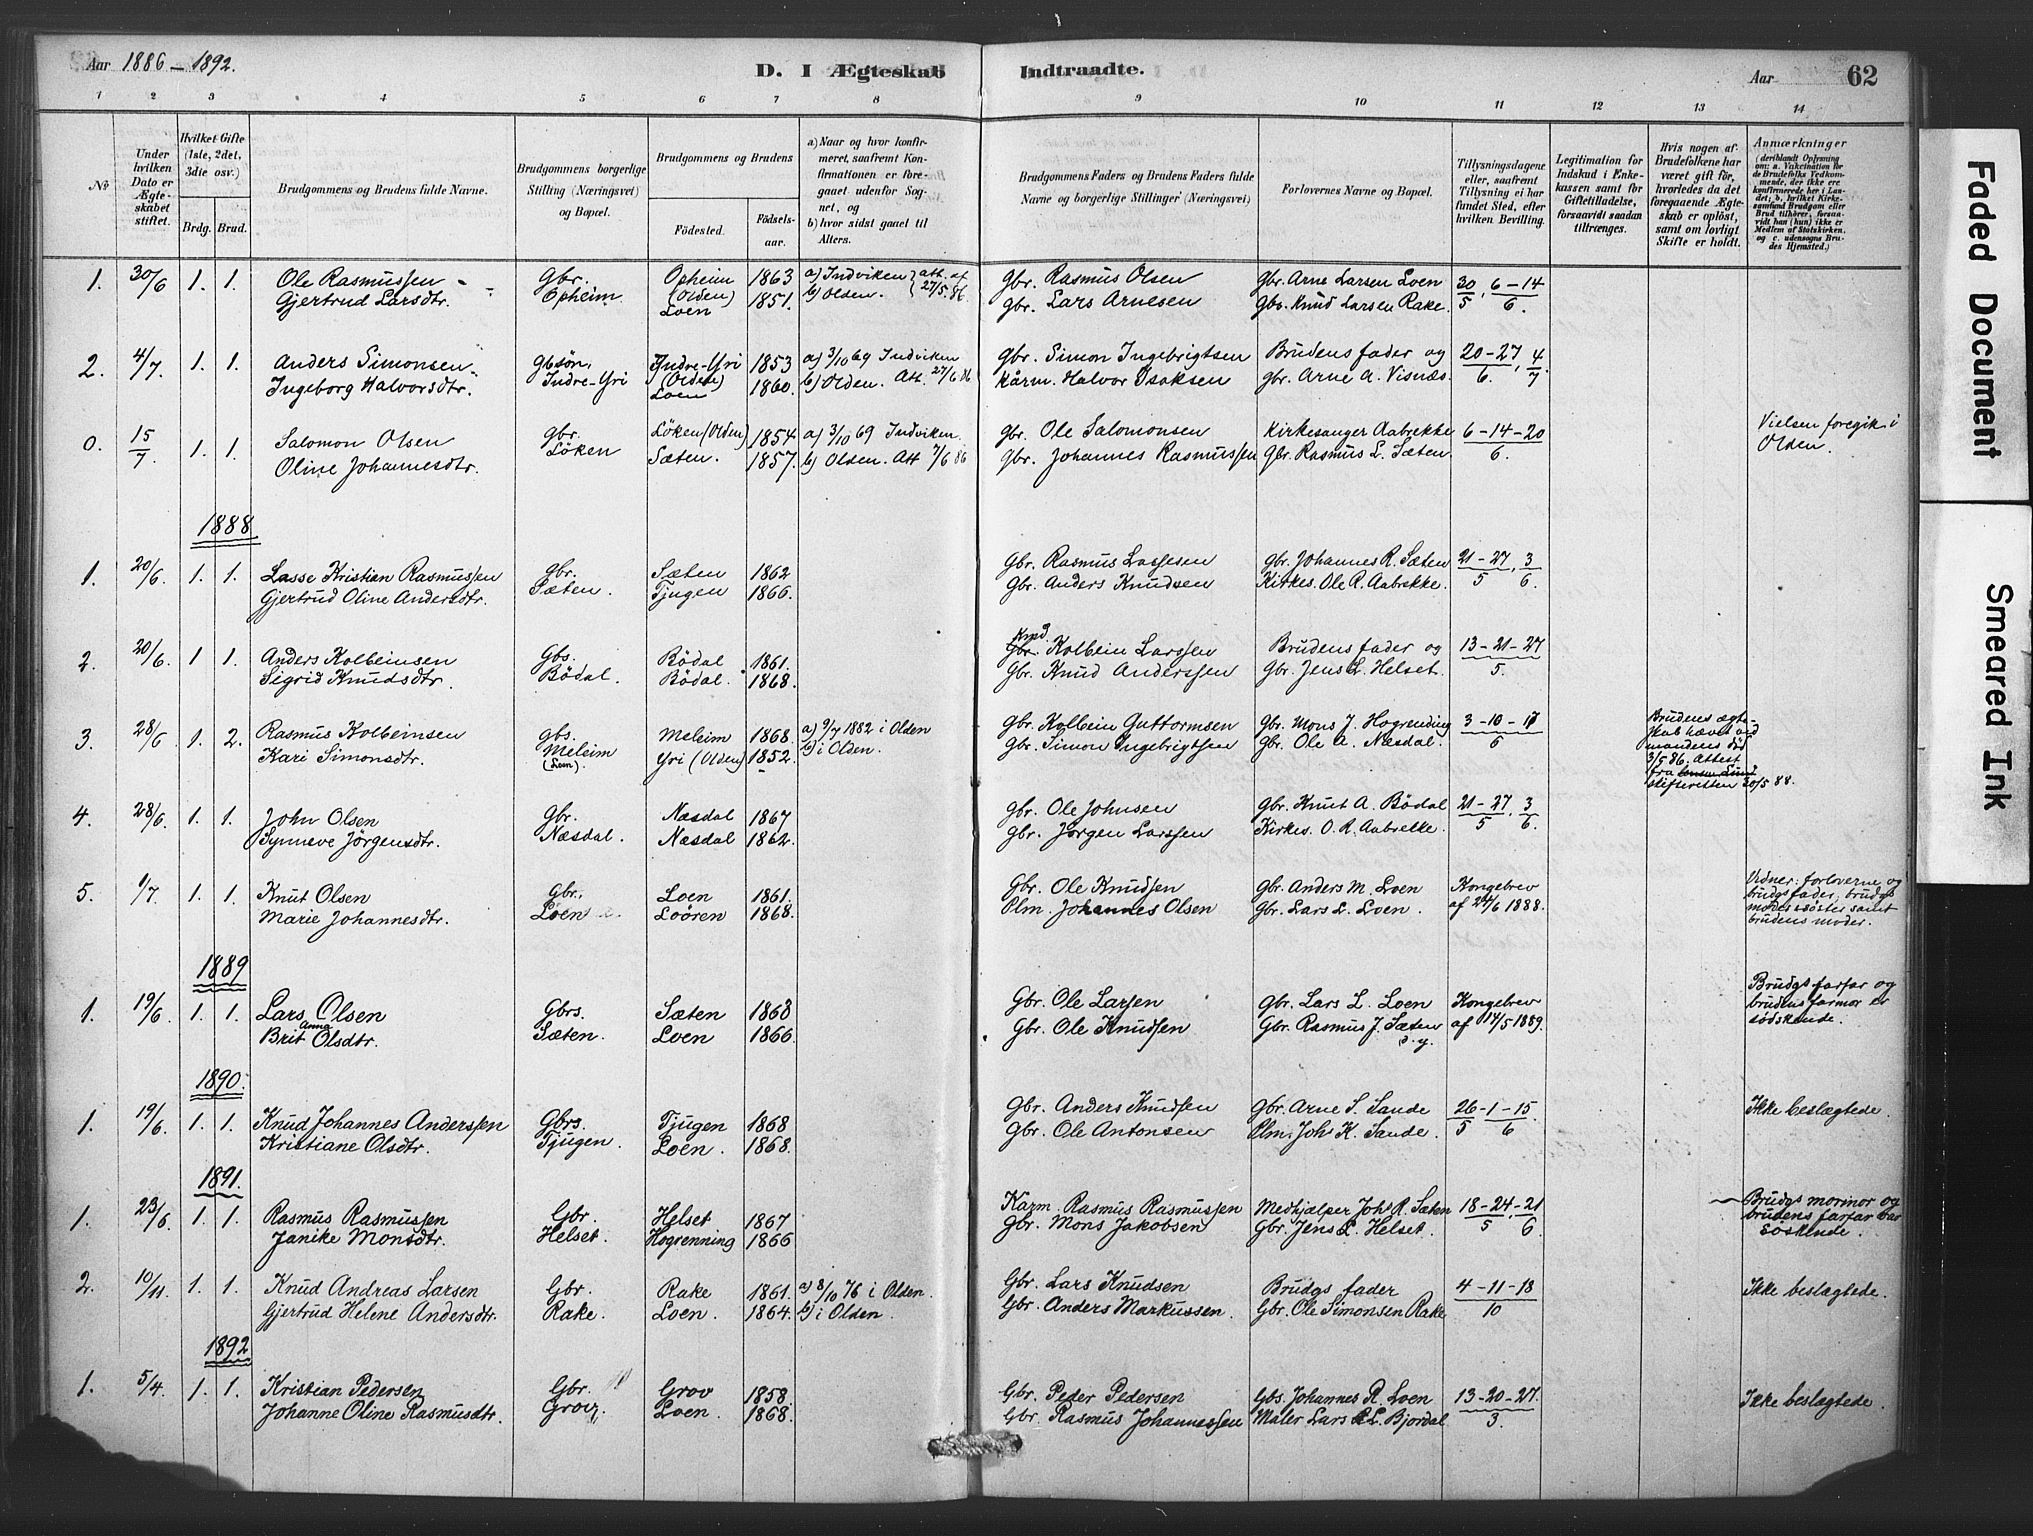 Aar 1886 – 1892.
D. I Ægteskab Indtraadte.
Aar 62
1 2 3 4 5 6 7 8 9 10 11 12 13 14
No
Under hvilken Dato er Ægteskabet stiftet.
Hvilket Gifte (1ste, 2det, 3die osv.)
Brdg. Brud.
Brudgommens og Brudens fulde Navne.
Brudgommens borgerlige Stilling (Næringsvei) og Bopæl.
Brudgommens og Brudens
Födested. Födselsaar.
a) Naar og hvor konfirmeret, saafremt Konfirmationen er foregaaet udenfor Sognet, og
b) hvor sidst gaaet til Alters.
Brudgommens Faders og Brudens Faders fulde Navne og borgerlige Stillinger (Næringsvei)
Forlovernes Navne og Bopæl.
Tillysningsdagene eller, saafremt Tillysning ei har fundet Sted, efter hvilken Bevilling.
Legitimation for Indskud i Enkekassen samt for Giftetilladelse, forsaavidt saadan tiltrænges.
Hvis nogen af Brudefolkene har været gift för, hvorledes da det foregaaende Ægteskab er oplöst, samt om lovligt Skifte er holdt.
Anmærkninger
(deriblandt Oplysning om: a. Vakcination for de Brudefolks Vedkommende, der ikke ere konfirmerede her i Landet; b. hvilket Kirkesamfund Brudgom eller Brud tilhörer, forsaavidt han (hun) ikke er Medlem af Statskirken, og c. udensogns Brudes Hjemsted.)
1. 30/6 1. 1. Ole Rasmussen Gbr. Opheim 1863 a) Indviken att. af Gbr. Rasmus Olsen Gbr. Arne Larsen Loen 30/5, 6–14/6.
Gjertrud Larsdtr. Opheim (Olden) Loen 1851. b) Olden. 27/5 86. Gbr. Lars Arnesen Gbr. Knud Larsen Rake.
2. 4/7. 1. 1. Anders Simonsen Gbsön, Indre-Yri 1853 a) 3/10 69 Indviken Gbr. Simon Ingebrigtsen Brudens fader og 20–27/6, 4/7
Ingeborg Halvorsdtr. Indre-Yri (Olden) Loen 1860. b) Olden. Att. 27/6 86 Kårm. Halvor Isaksen gbr. Arne A. Visnæs.
0. 15/7 1. 1. Salomon Olsen gbr. Löken (Olden) 1854 a) 3/10 69 Indviken. gbr. Ole Salomonsen Kirkesanger Aabrekke 6–14–20/6. Vielsen foregik i
Oline Johannesdtr. Löken Sæten. 1857. b) Olden. Att 7/6 86 Gbr. Johannes Rasmussen Gbr. Rasmus L. Sæten. Olden.
1888
1. 20/6. 1. 1. Lasse Kristian Rasmussen gbr. Sæten 1862 Gbr. Rasmus Lassesen gbr. Johannes R. Sæten 21–27/5, 3/6.
Gjertrud Oline Andersdtr. Sæten. Tjugen 1866. Gbr. Anders Knudsen Kirkes. Ole R. Aabrekke.
2. 20/6. 1 1. Anders Kolbeinsen Gbs. Bödal 1861. Gbr. Kolbein Larssen Brudens fader og 13–21–27/5.
Sigrid Knudsdtr. Bödal. Bödal. 1868. Gbr. Knud Anderssen Gbr. Jens L. Helset.
3. 28/6 1. 2. Rasmus Kolbeinsen gbs. Meleim 1868. a) 9/7 1882 i Olden Gbr. Kolbein Guttormsen Gbr. Mons J. Hogrending 3–10–17/6 Brudens ægteskab hævet ved mandens död 3/5 86. Attest fra skifteretten 30/5 88.
Kari Simonsdtr. Meleim (Loen). Yri (Olden) 1852. b) i Olden. Gbr. Simon Ingebrigtsen Gbr. Ole A. Næsdal.
4. 28/6. 1. 1. John Olsen Gbr. Næsdal 1867 gbr. Ole Johnsen Gbr. Knut A. Bödal 21–27/5, 3/6.
Synneve Jörgensdtr. Næsdal. Næsdal 1862. gbr. Jörgen Larssen Kirkes. O. R. Aabrekke.
5. 1/7. 1. 1. Knut Olsen Gbr. Loen 1861. Gbr. Ole Knudsen Gbr. Anders M. Loen Kongebrev Vidner: forloverne og brudgs fader, brudgs moders söster samt brudens moder.
Marie Johannesdtr. Loen Loören 1868. Plm. Johannes Olsen Gbr. Lars L. Loen. af 24/6 1888.
1889
1. 19/6. 1. 1. Lars Olsen Gbrs. Sæten 1868 Gbr. Ole Larsen Gbr. Lars L. Loen Kongebrev Brudgs farfar og brudens farmor er södskende.
Brit Anna Olsdtr. Sæten. Loen 1866. Gbr. Ole Knudsen Gbr. Rasmus J. Sæten d. y. af 14/5 1889.
1890.
1. 19/6. 1. 1. Knud Johannes Anderssen Gbrs. Tjugen 1868 Gbr. Anders Knudsen Gbr. Arne S. Sande 26/5–1–15/6 Ikke beslægtede.
Kristiane Olsdtr. Tjugen. Loen. 1868. Gbr. Ole Antonsen Plm. Joh K. Sande.
1891.
1. 23/6. 1. 1. Rasmus Rasmussen Gbr. Helset 1867 Karm. Rasmus Rasmussen Medhjælper Joh R. Sæten 18–24/5–21/6. Brudgs mormor og brudens farfar var söskende.
Janike Monsdtr. Helset. Hogrenning 1866 Gbr. Mons Jakobsen Gbr. Jens L. Helset.
2. 10/11. 1. 1. Knud Andreas Larsen Gbr. Rake 1861. a) 8/10 76 i Olden. Gbr. Lars Knudsen Brudgs fader 4–11–18/10 Ikke beslægtede.
Gjertrud Helene Andersdtr. Rake. Loen. 1864. b) i Olden. Gbr. Anders Markussen. Gbr. Ole Simonsen Rake
1892
1. 5/4. 1. 1. Kristian Pedersen Gbr. Grov 1858 Gbr. Peder Pedersen Gbs. Johannes R. Loen 13–20–27/3. Ikke beslægtede.
Johanne Oline Rasmusdtr. Grov Loen. 1868. Gbr. Rasmus Johannessen Maler Lars L. Bjordal
Faded Document
Smeared Ink